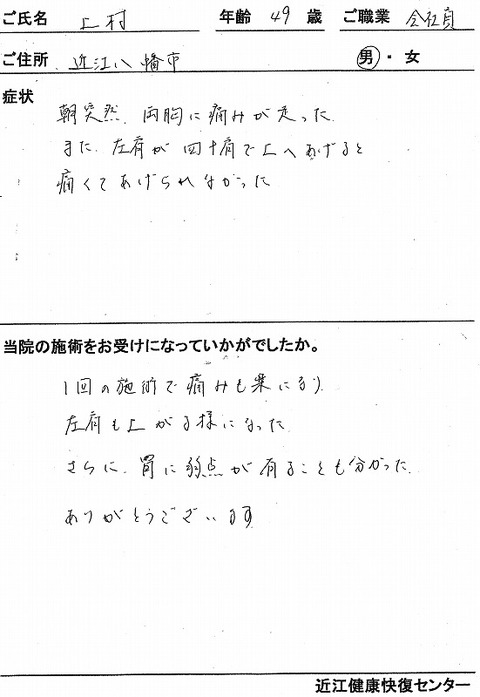 ご氏名 上村 年齢 49 歳 ご職業 会社員
ご住所 近江八幡市 男・女
症状
朝突然、両胸に痛みが走った
また、左肩が四十肩で上へあげると
痛くてあげられなかった
当院の施術をお受けになっていかがでしたか。
1回の施術で痛みも楽になり
左肩も上がる様になった
さらに、胃に弱点が有ることも分かった
ありがとうございます
近江健康快復センター